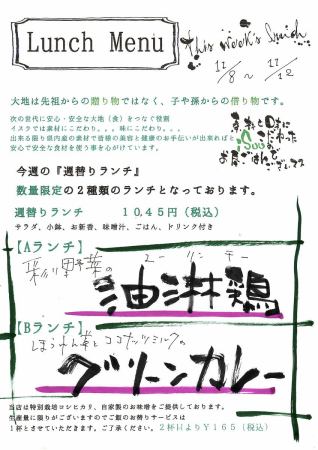 Lunch Menu
This week's Lunch
11/8 〜 11/12
大地は先祖からの贈り物ではなく、子や孫からの借り物です。
次の世代に安心・安全な大地（食）をつなぐ役割
イスラでは素材にこだわり。。。味にこだわり。。。
出来る限り県内産の素材で皆様の美容と健康のお手伝いが出来ればと
安心で安全な食材を使う事を心がけています。
素材と味に
こだわった
お昼ごはんで
ございます
今週の『週替りランチ』
数量限定の２種類のランチとなっております。
週替りランチ　　１０４５円（税込）
サラダ、小鉢、お新香、味噌汁、ごはん、ドリンク付き
【Aランチ】
彩り野菜の
ユーリンチー
油淋鶏
【Bランチ】
ほうれん草とココナッツミルクの
グリーンカレー
当店は特別栽培コシヒカリ、自家製のお味噌をご提供しております。
生産量に限りがございますのでご飯のお替りサービスは
１杯とさせていただきます。ご了承ください。２杯目より￥１６５（税込）